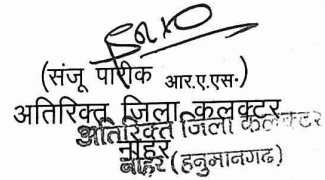 (संजू पारीक आर.ए.एस.)
अतिरिक्त जिला कलक्टर
अतिरिक्त जिला कलक्टर
नोहर
नोहर (हनुमानगढ)